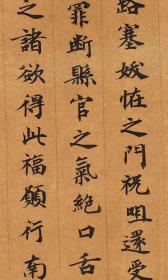 路塞妭恠之門祝咀還受
罪断縣官之氣絕口舌
之諸欲得此福願行南